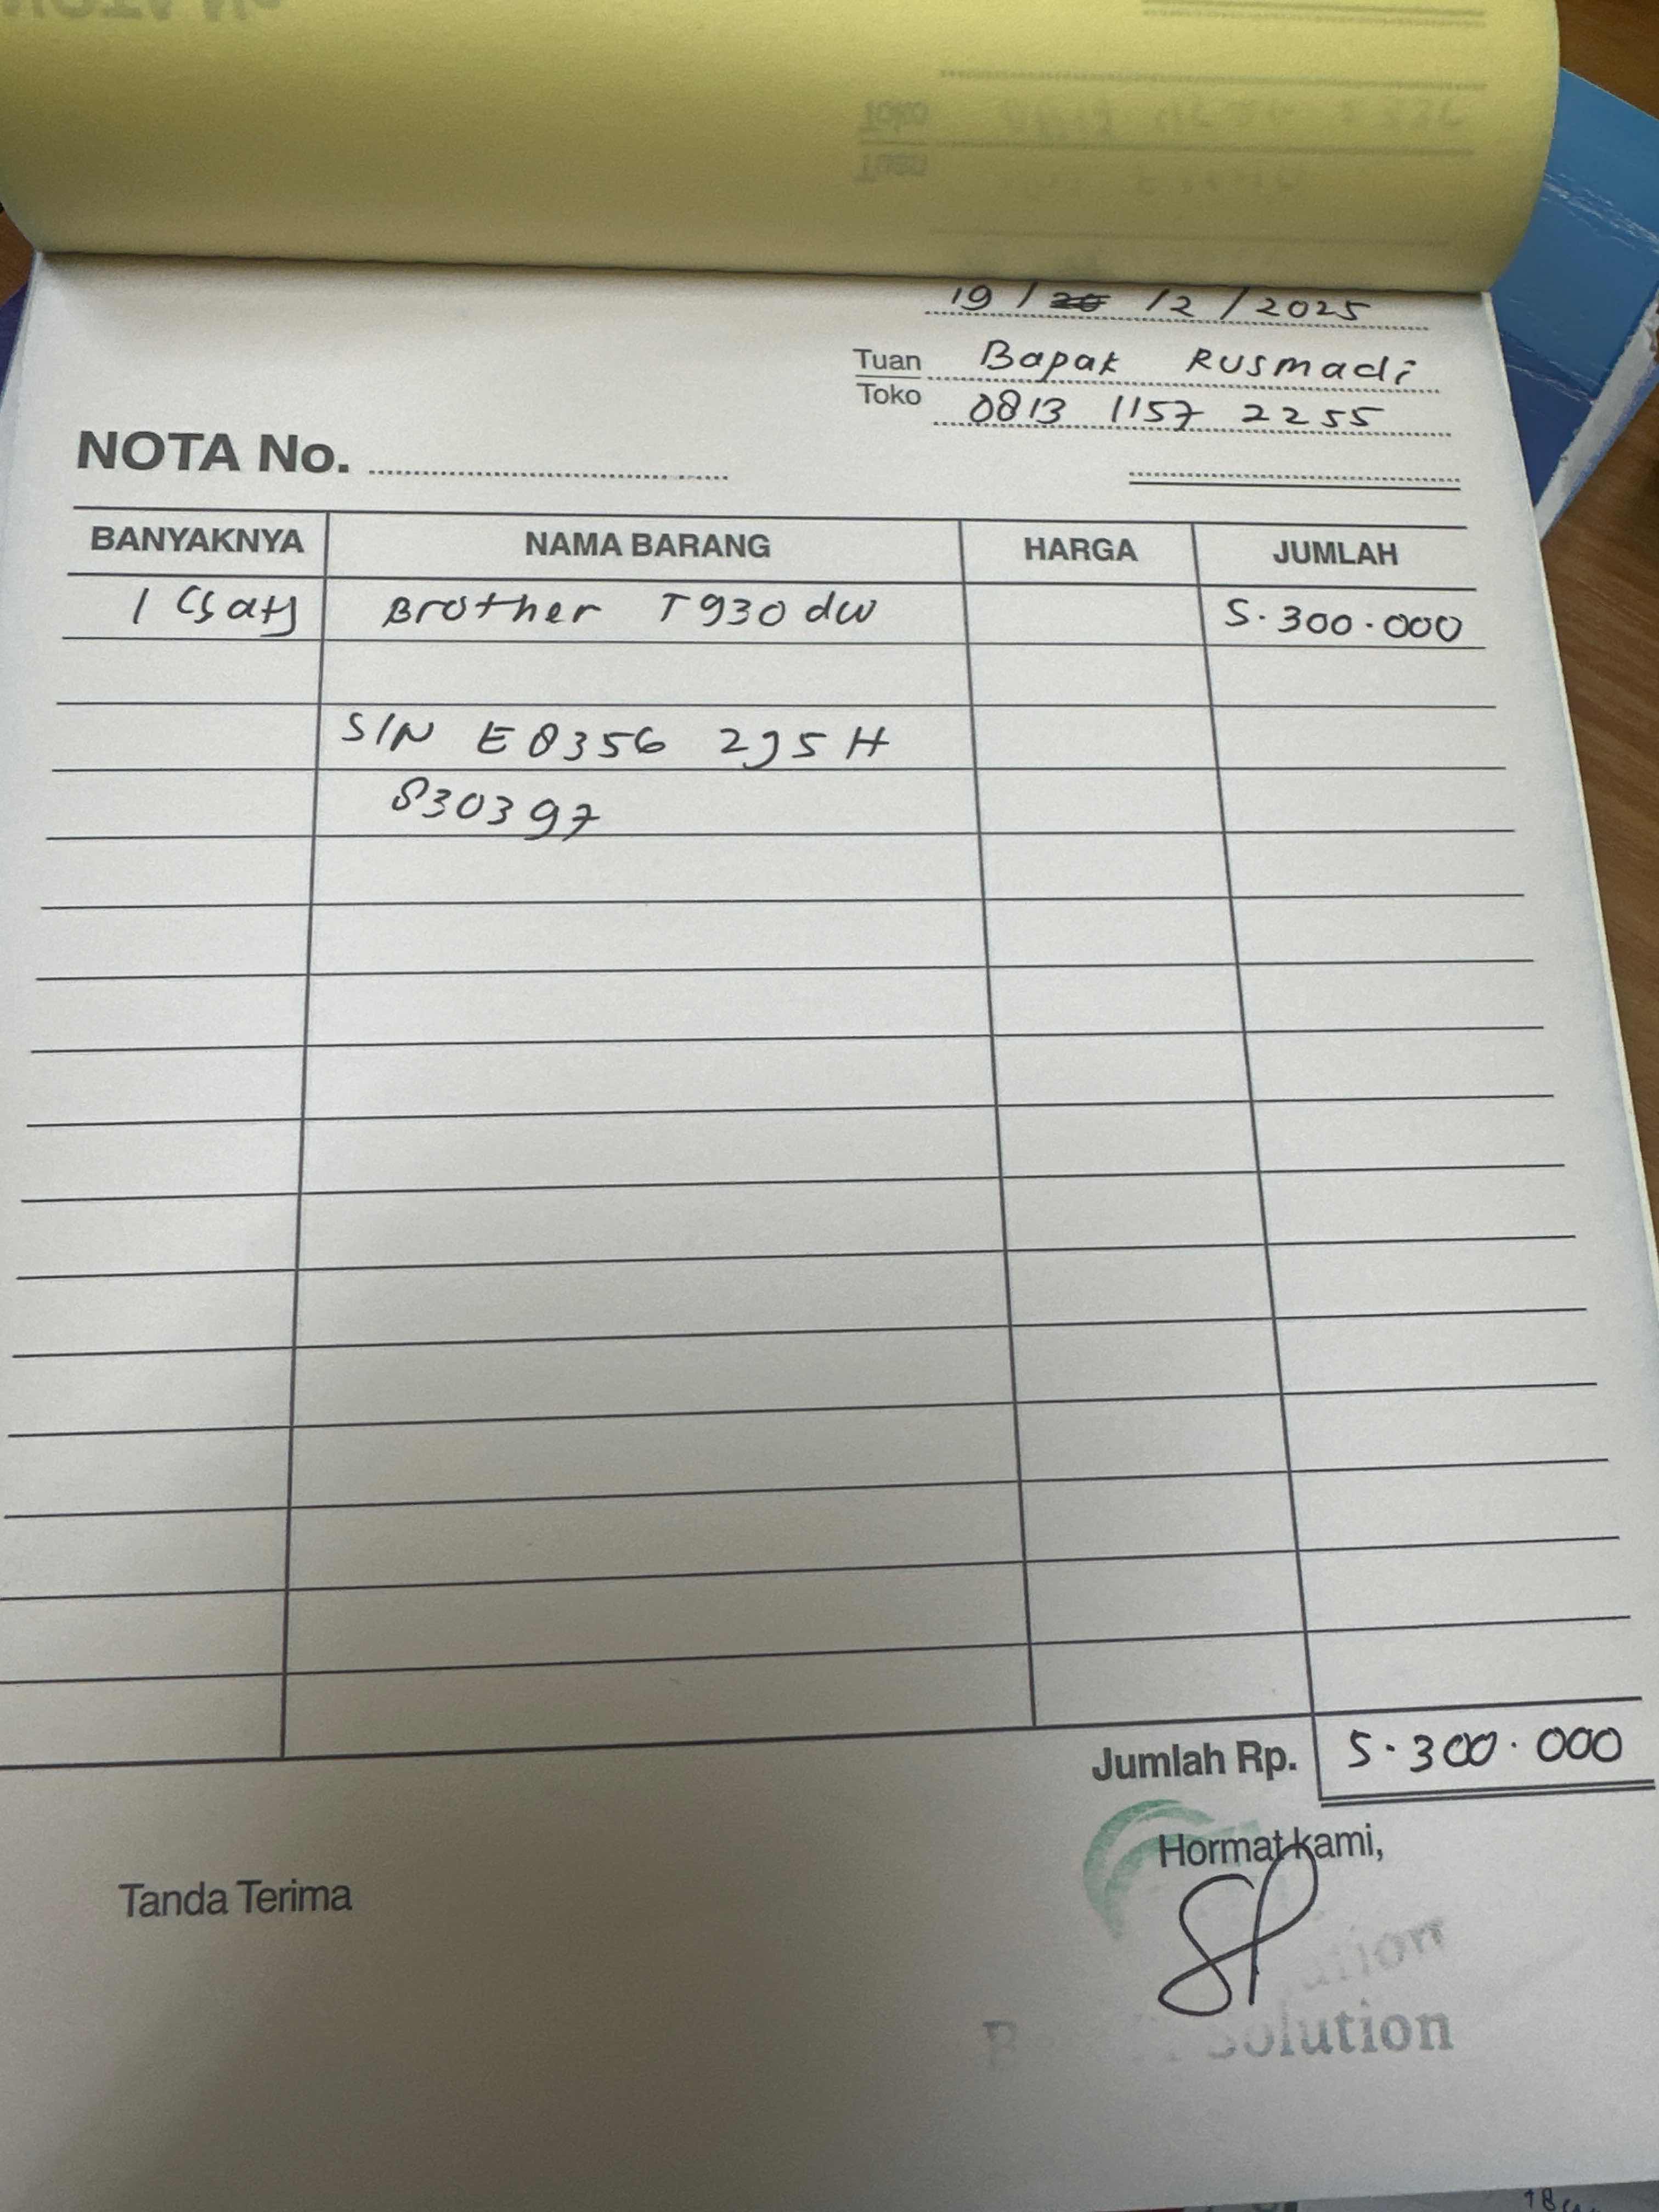 19 / 12 / 2025
Tuan Bapak Rusmadi
Toko 0813 1157 2255
NOTA No.
BANYAKNYA NAMA BARANG HARGA JUMLAH
1 (sat) Brother T930 dw 5.300.000
S/N E8356 295H
830397
Jumlah Rp. 5.300.000
Hormat kami,
Tanda Terima
Solution